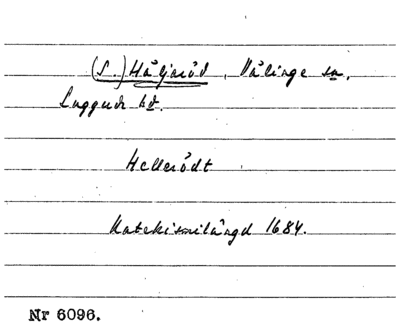 (S.) Häljaröd, Välinge sn.
Luggude hd.
Hellerödt
Katekismilängd 1684.
Nr 6096.